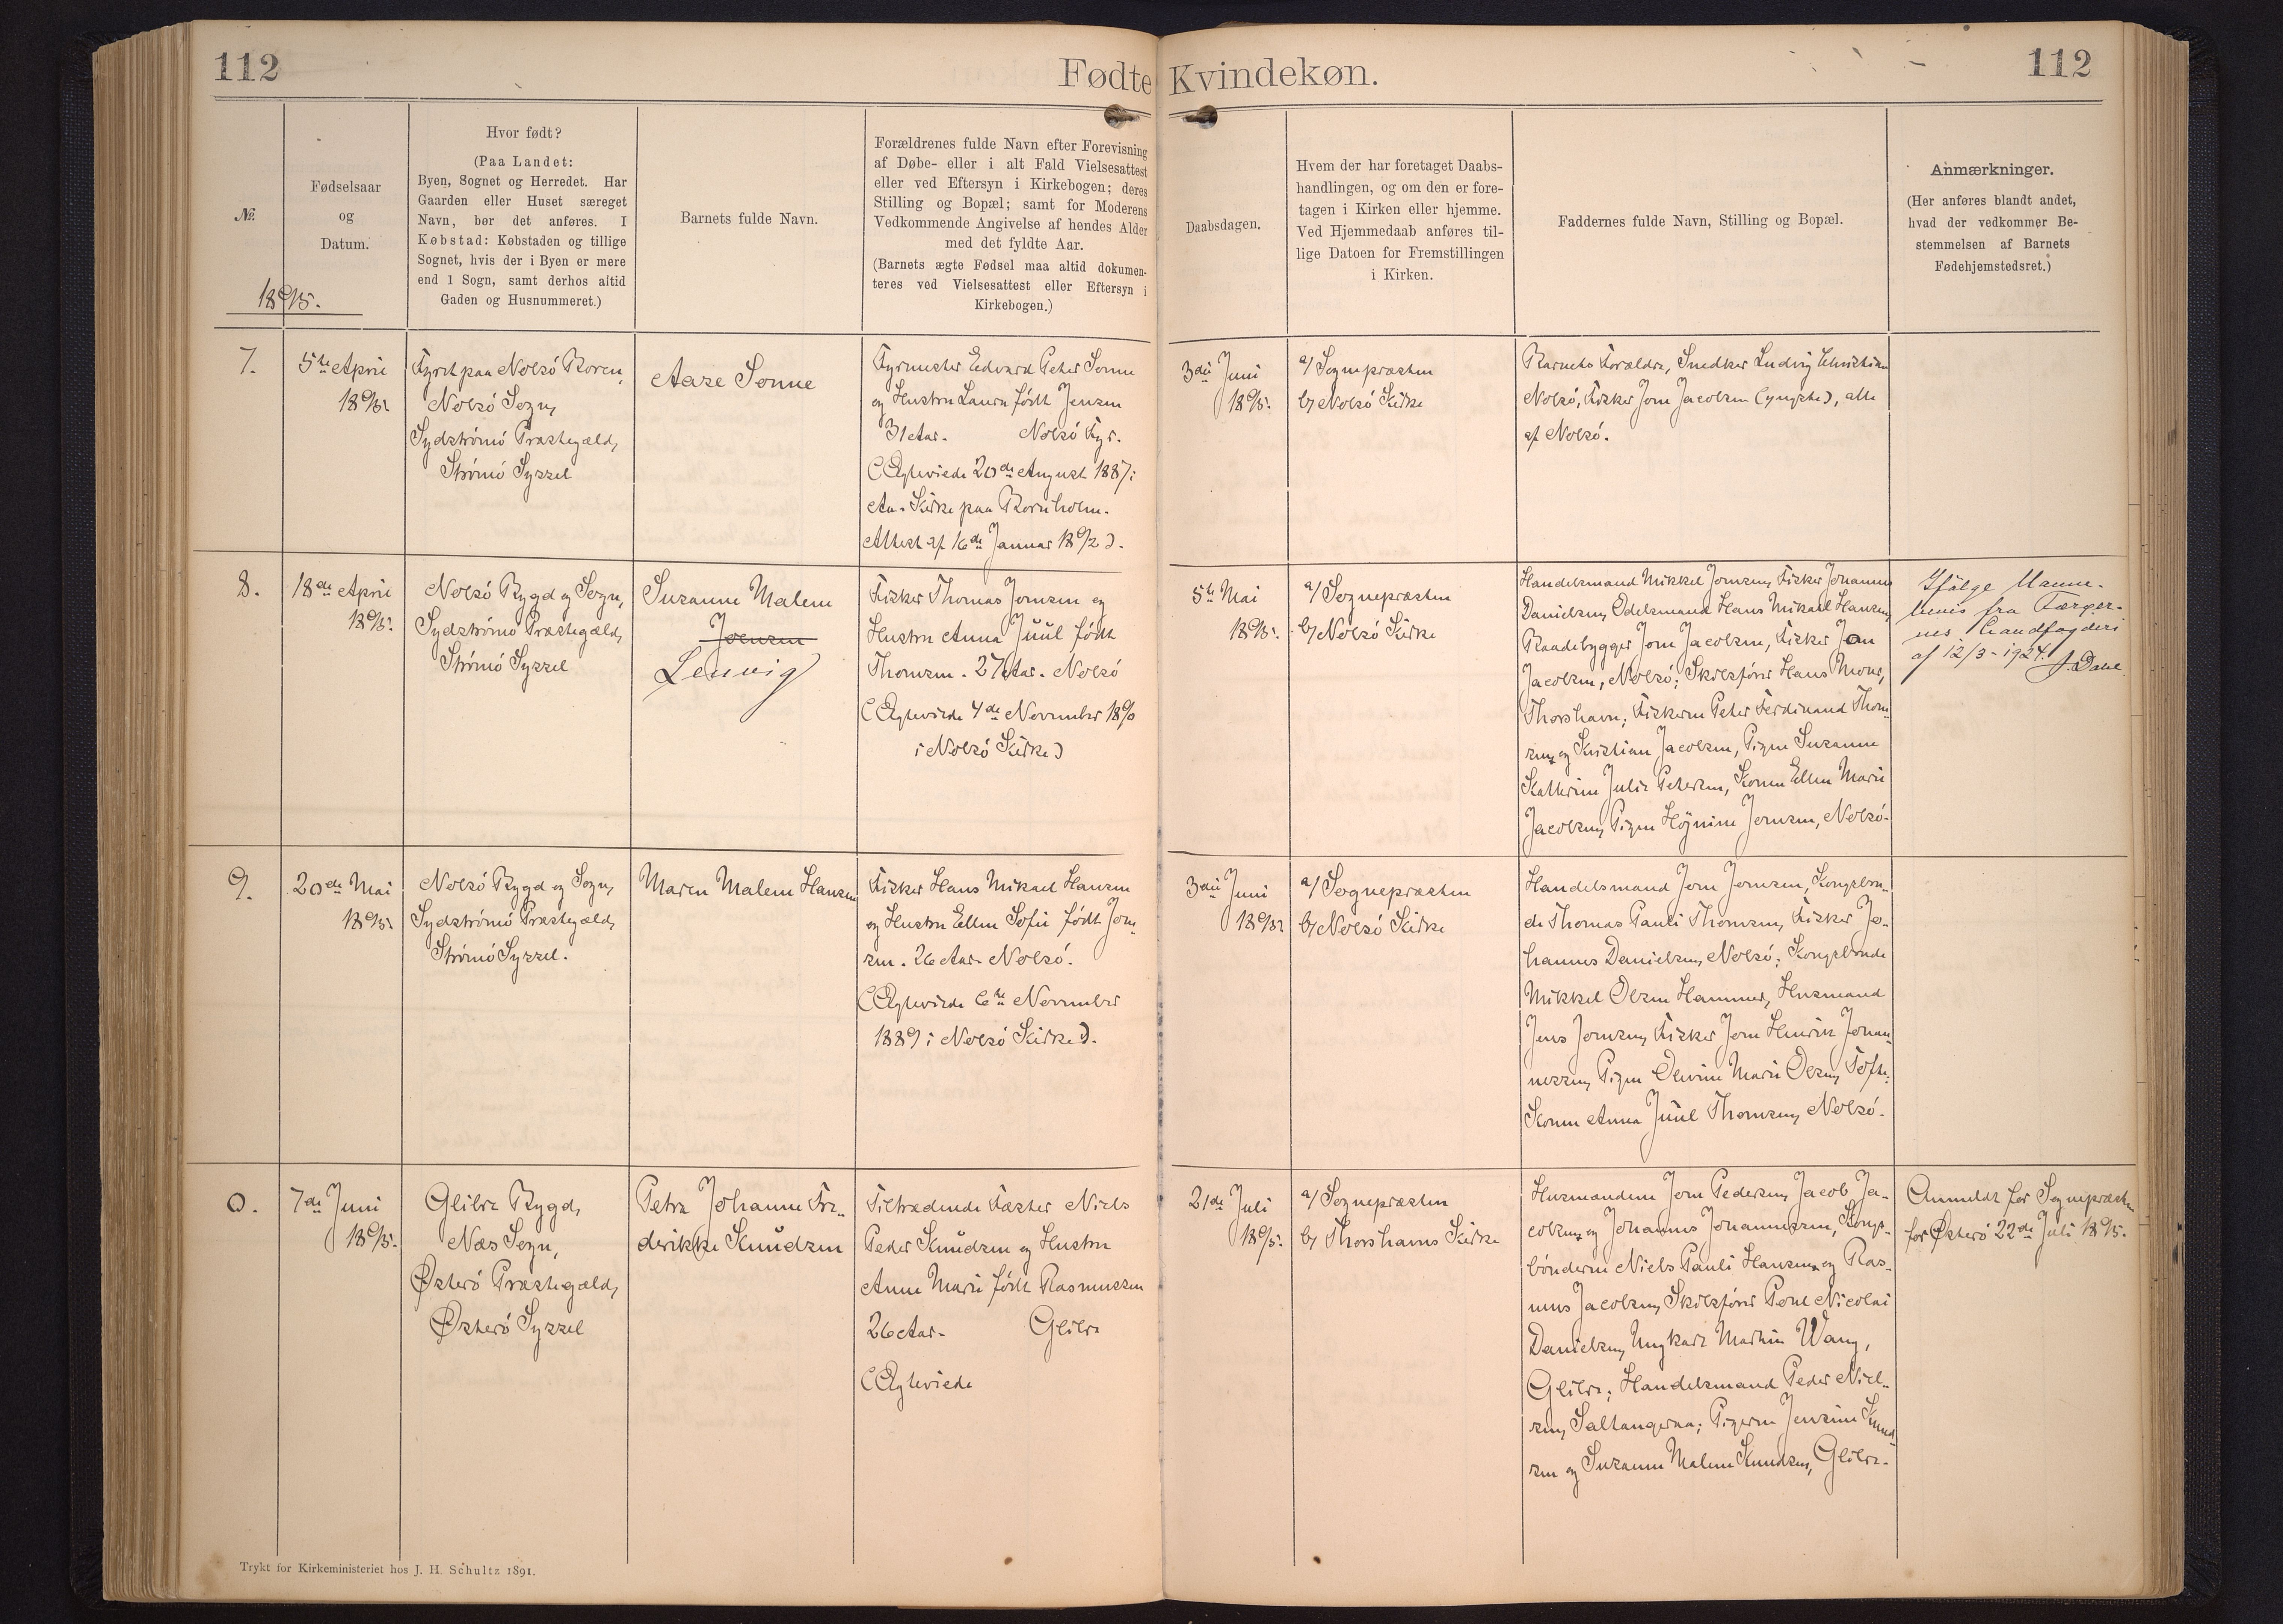 112
Fødte Kvindekøn.
112
№.
Fødselsaar
og
Datum.
1895.
Hvor født?
(Paa Landet:
Byen, Sognet og Herredet. Har
Gaarden eller Huset særeget
Navn, bør det anføres. I
Købstad: Købstaden og tillige
Sognet, hvis der i Byen er mere
end 1 Sogn, samt derhos altid
Gaden og Husnummeret.)
Barnets fulde Navn.
Forældrenes fulde Navn efter Forevisning
af Døbe- eller i alt Fald Vielsesattest
eller ved Eftersyn i Kirkebogen; deres
Stilling og Bopæl; samt for Moderens
Vedkommende Angivelse af hendes Alder
med det fyldte Aar.
(Barnets ægte Fødsel maa altid dokumen-
teres ved Vielsesattest eller Eftersyn i
Kirkebogen.)
Daabsdagen.
Hvem der har foretaget Daabs-
handlingen, og om den er fore-
tagen i Kirken eller hjemme.
Ved Hjemmedaab anføres til-
lige Datoen for Fremstillingen
i Kirken.
Faddernes fulde Navn, Stilling og Bopæl.
Anmærkninger.
(Her anføres blandt andet,
hvad der vedkommer Be-
stemmelsen af Barnets
Fødehjemstedsret.)
7.
5te April
1895.
Fyret paa Nolsö Boren,
Nolsö Sogn,
Sydströmö Præstegæld,
Strömö Syssel
Aase Sonne
Fyrmester Edvard Peter Sonne
og Hustru Laura født Jensen
31 Aar. Nolsö Fyr.
(Ægteviede 20de August 1887 i
Aa-Kirke paa Bornholm.
Attest af 16de Januar 1892).
3die Juni
1895.
a/ Sognepræsten
b/ Nolsö Kirke
Barnets Forældre, Snedker Ludvig Christian
Nolsö, Fisker Jorn Jacobsen (yngste), alle
af Nolsö.
8.
18de April
1895.
Nolsö Bygd og Sogn,
Sydströmö Præstegæld,
Strömö Syssel
Susanne Malene
Joensen
Lenvig
Fisker Thomas Jornsen og
Hustru Anna Juul født
Thomsen. 27 Aar. Nolsö
(Ægteviede 4de November 1890
i Nolsö Kirke)
5te Mai
1895.
a/ Sognepræsten
b/ Nolsö Kirke
Handelsmand Mikkel Jornsen, Fisker Johannes
Danielsen, Odelsmand Hans Mikael Hansen,
Baadebygger Jorn Jacobsen, Fisker Joen
Jacobsen, Nolsö; Skibsfører Hans Mohr,
Thorshavn; Fiskerne Peter Ferdinand Thom-
sen, og Kristian Jacobsen, Pigen Susanne
Kathrine Julie Petersen, Konen Ellen Marie
Jacobsen, Pigen Højnine Jornsen, Nolsö.
Ifølge Navne-
bevis fra Færøer-
nes Landfogderi
af 12/3-1924.
9.
20de Mai
1895.
Nolsö Bygd og Sogn,
Sydströmö Præstegæld,
Strömö Syssel.
Maren Malene Hansen
Fisker Hans Mikael Hansen
og Hustru Ellen Sofie født Jorn-
sen. 26 Aar. Nolsö.
(Ægteviede 6te November
1889 i Nolsö Kirke).
3die Juni
1895
a/ Sognepræsten
b/ Nolsö Kirke
Handelsmand Jorn Jornsen, Kongsbon-
de Thomas Pauli Thomsen, Fisker Jo-
hannes Danielsen, Nolsö; Kongsbonde
Mikkel Olsen Hammer, Husmand
Jens Jornsen, Fisker Jorn Henrik Johan-
nessen, Pigen Olevine Marie Olsen, Tofte;
Konen Anna Juul Thomsen, Nolsö.
0.
7de Juni
1895.
Glibre Bygd,
Næs Sogn,
Østerö Præstegæld,
Østerö Syssel
Petra Johanne Fre-
derikke Knudsen
Tiltrædende Fæster Niels
Peder Knudsen og Hustru
Anne Marie født Rasmussen
26 Aar. Glibre
(Ægteviede
21de Juli
1895.
a/ Sognepræsten
b/ Thorshavns Kirke
Husmændene Jorn Pedersen, Jacob Ja-
cobsen, og Johannes Johannessen, Kongs-
bönderne Niels Pauli Hansen, og Ras-
mus Jacobsen, Skibsfører Poul Nicolai
Danielsen, Ungkarl Martin Wang,
Glibre; Handelsmand Peder Niel-
sen, Saltangeraa; Pigerne Jensine Knud-
sen og Susanne Malene Knudsen, Glibre.
Anmeldt for Sognepræsten
for Østerö 22de Juli 1895.
Trykt for Kirkeministeriet hos J. H. Schultz 1891.